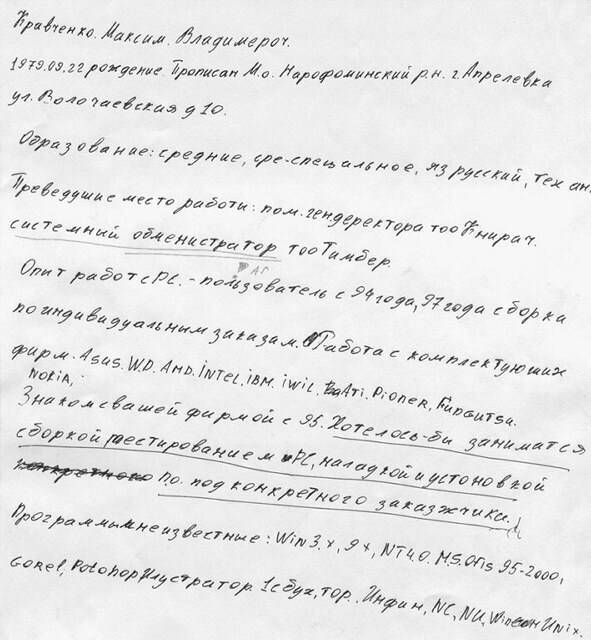 Кравченко. Максим. Владимероч.
1979.09.22 рождение. Прописан М.о. Нарофоминский р.н. г. Апрелевка
ул. Волочаевская д 10.
Образование: средние, сре-специальное, яз русский, тех ан.
Преведущие место работи: пом. гендеректора тоо Книрач.
системний обменистратор тоо Тимбер.
Опит работ с PC. - пользователь с 94 года, 97 года сборка
по индивидуальним заказам. Работа с комплектующих
фирм. Asus. W.D. AMD. iNTEL. iBM. iwil. Ati. Pioner. Fungutsu.
NOKiA,
Знаком с вашей фирмой с 95. Хотелось-би заниматся
сборкой тестированием PC, наладкой и устоновкой
по. под конкретного заказжчика.
Программы мне известные: Win 3.x, 9x, NT4.0. M.S. Ofis 95-2000,
Gorel, Potohop Илустратор. 1с бух, тор. Инфин, NC, NU, Wincom Unix.